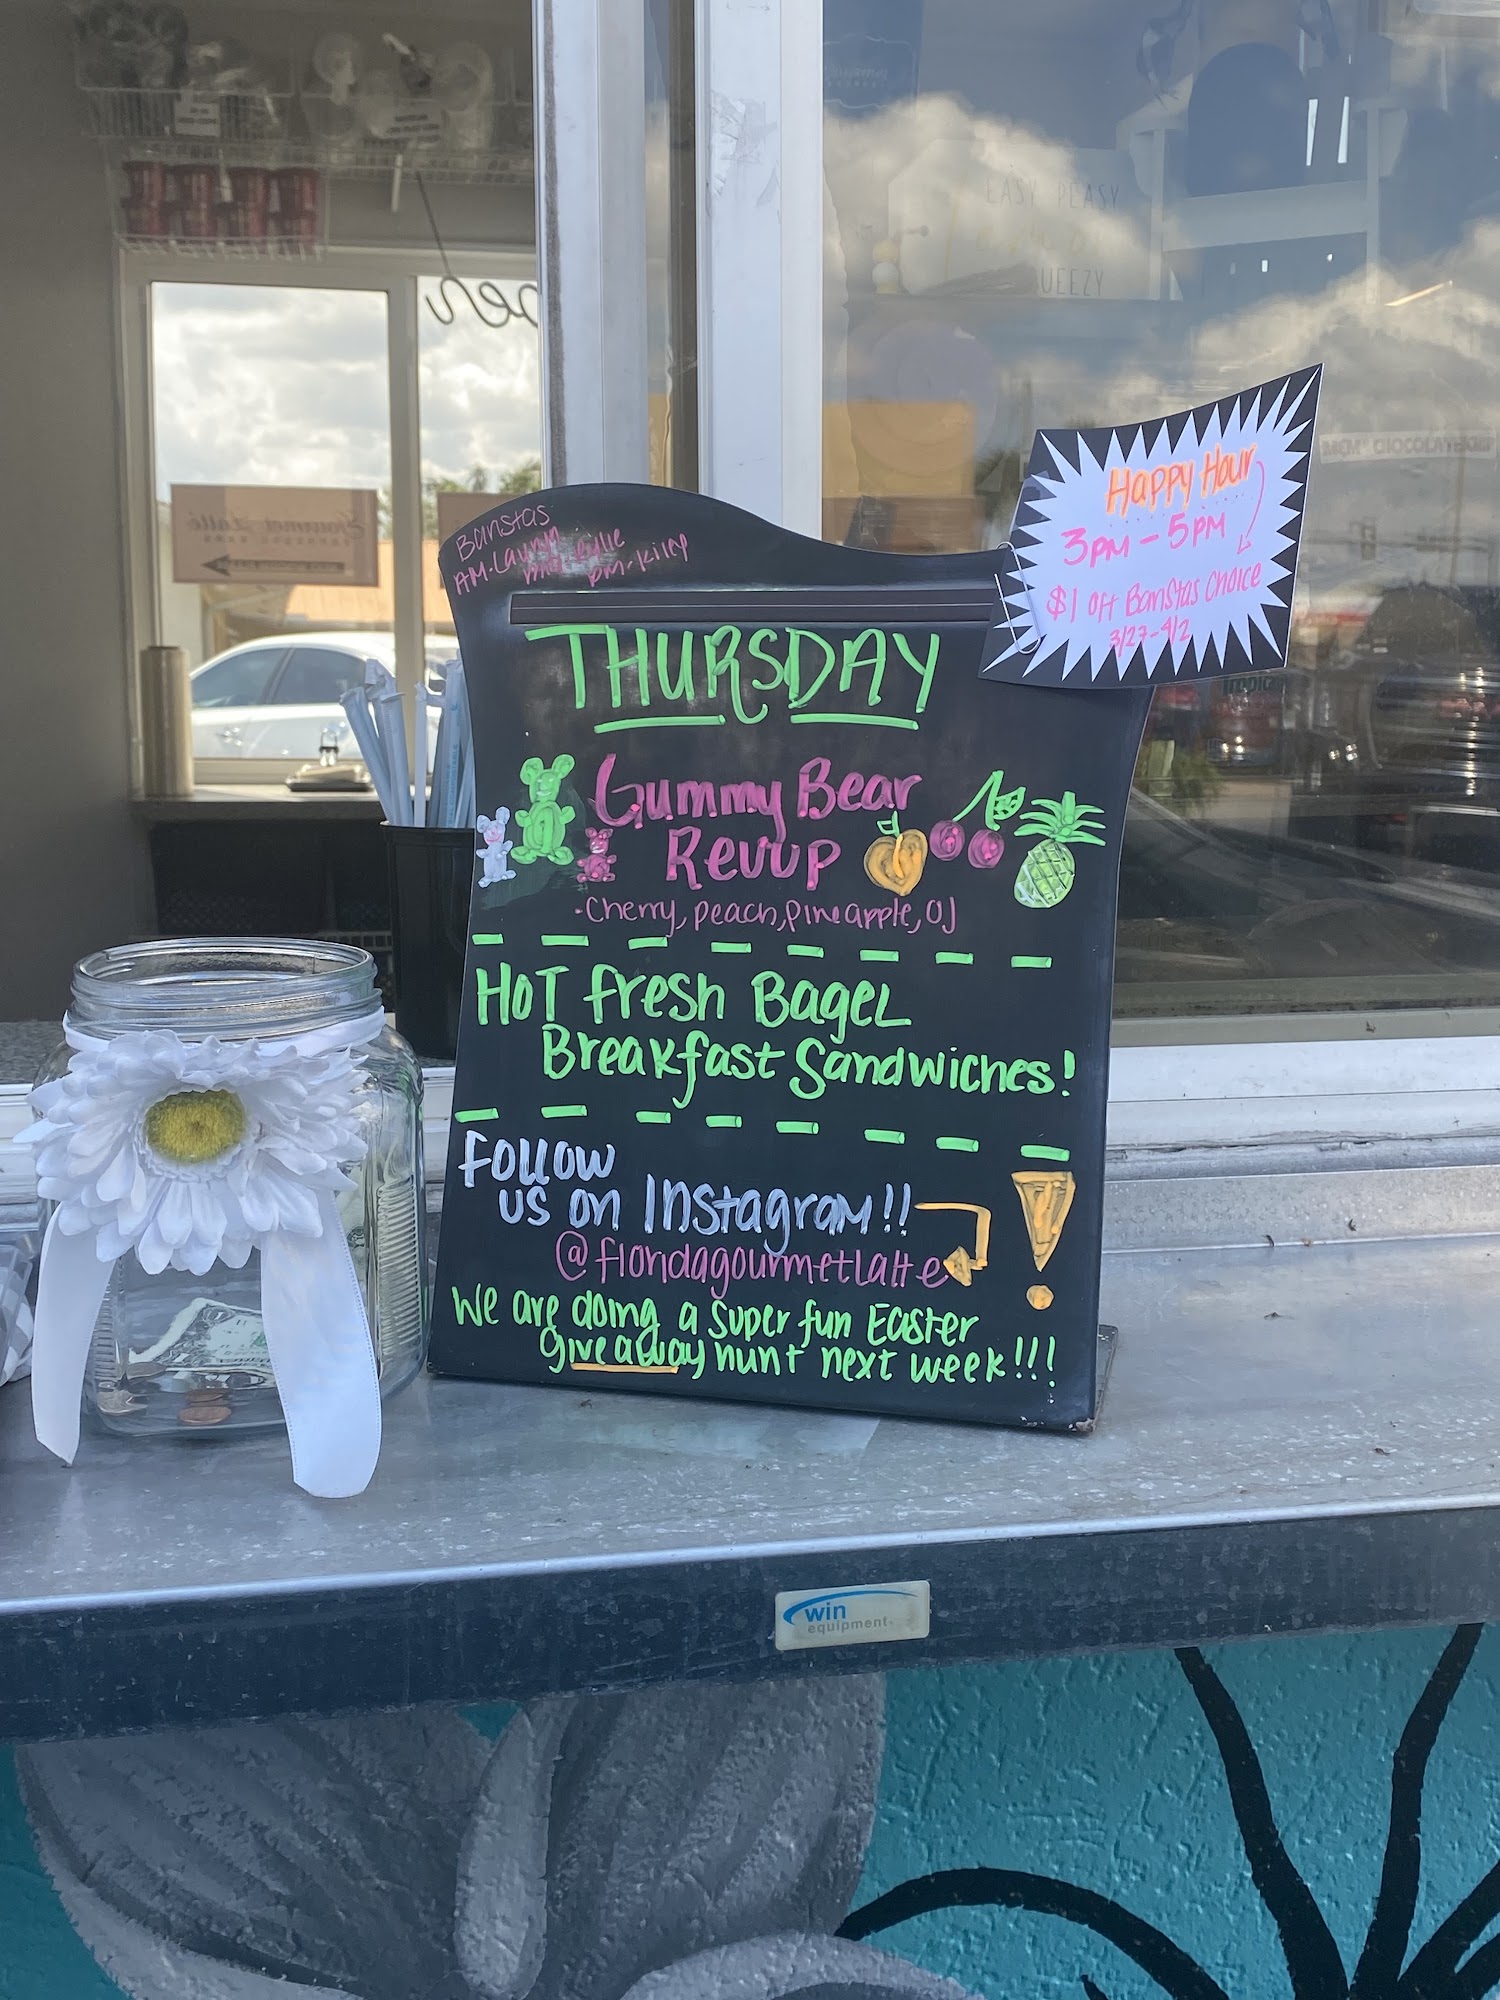 EASY PEASY
UEEZY
Gourmet Latté
Happy Hour
3PM - 5PM
$1 off Baristas Choice
3/27-4/2
Baristas
AM-Lauryn
pm-kiley
THURSDAY
Gummy Bear
Revup
-Cherry, peach, Pineapple, OJ
HOT fresh BageL
Breakfast Sandwiches!
FOLLOW
us on Instagram!!
@floridagourmetlatte
We are doing a super fun Easter
giveaway hunt next week!!!
win
equipment